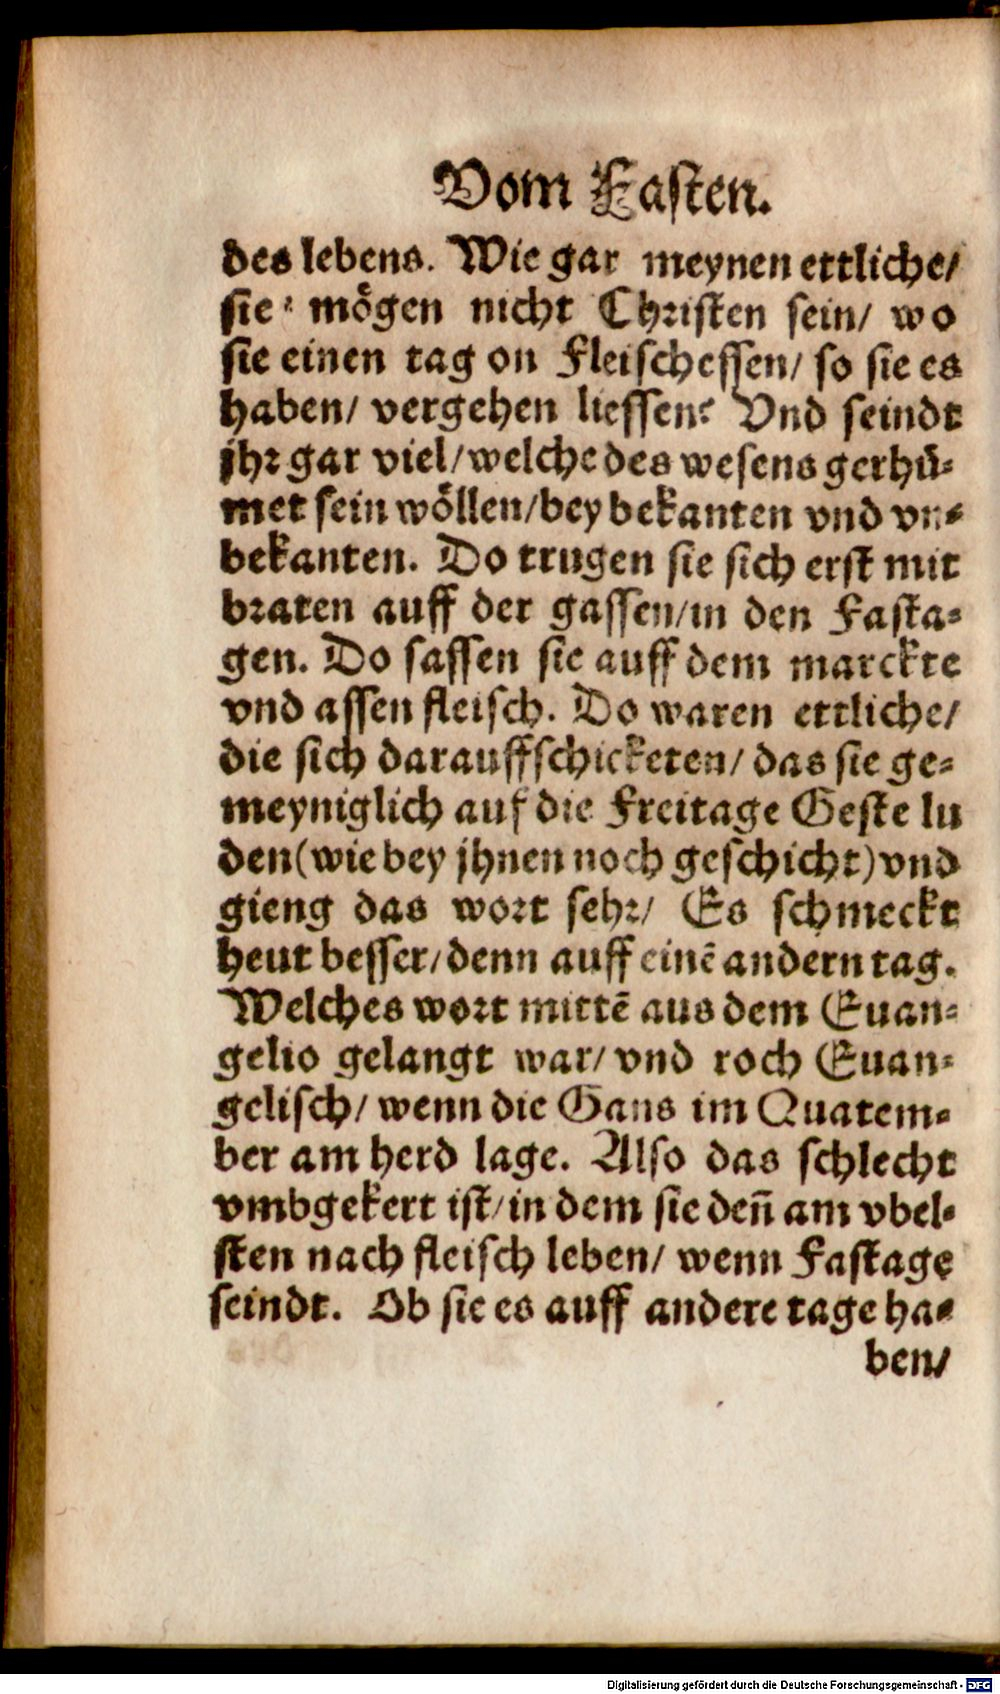 Vom Fasten.
des lebens. Wie gar meynen ettliche/
sie mögen nicht Christen sein/ wo
sie einen tag on Fleischessen/ so sie es
haben/ vergehen liessen? Vnd seindt
jhr gar viel/welche des wesens gerhü-
met sein wöllen/bey bekanten vnd vn-
bekanten. Do trugen sie sich erst mit
braten auff der gassen/in den Fasta-
gen. Do sassen sie auff dem marckte
vnd assen fleisch. Do waren ettliche/
die sich darauffschicketen/ das sie ge-
meyniglich auf die Freitage Geste lu
den(wie bey jhnen noch geschicht)vnd
gieng das wort sehr/ Es schmeckt
heut besser/denn auff einē andern tag.
Welches wort mittē aus dem Euan-
gelio gelangt war/ vnd roch Euan-
gelisch/ wenn die Gans im Quatem-
ber am herd lage. Also das schlecht
vmbgekert ist/in dem sie deñ am vbel-
sten nach fleisch leben/ wenn Fastage
seindt. Ob sie es auff andere tage ha-
ben/
Digitalisierung gefördert durch die Deutsche Forschungsgemeinschaft - DFG